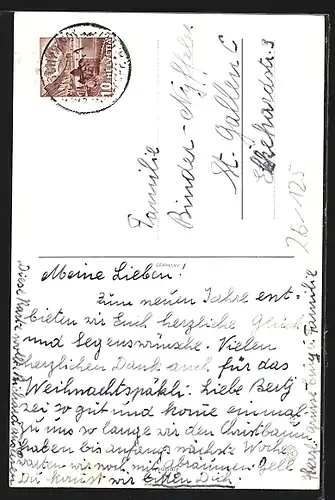 HELVETIA
10
Familie
Binder-Nyffeler
St. Gallen C
Ekkehardstr. 3
26-125
GERMANY
Meine Lieben!
Zum neuen Jahre ent-
bieten wir Euch herzliche Glück
und Segenswünsche. Vielen
herzlichen Dank auch für das
Weihnachtspäkli. Liebe Berty
sei so gut und komme einmal
zu uns so lange wir den Christbaum
haben bis anfangs nächste Woche
warten wir noch mit abräumen. Gell
Du kommst wir bitten Dich!
Herzl. Grüsse Familie